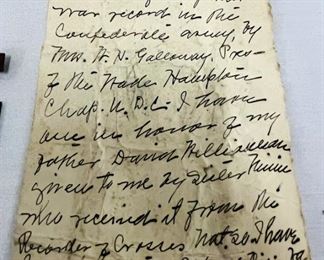 war record in the
Confederate army, by
Mrs. W. N. Galloway, Pres-
of the Wade Hampton
Chap. U. D. C. I have
one in honor of my
father David Williamson
given to me by Sister Minnie
who received it from the
Recorder of Crosses. I have